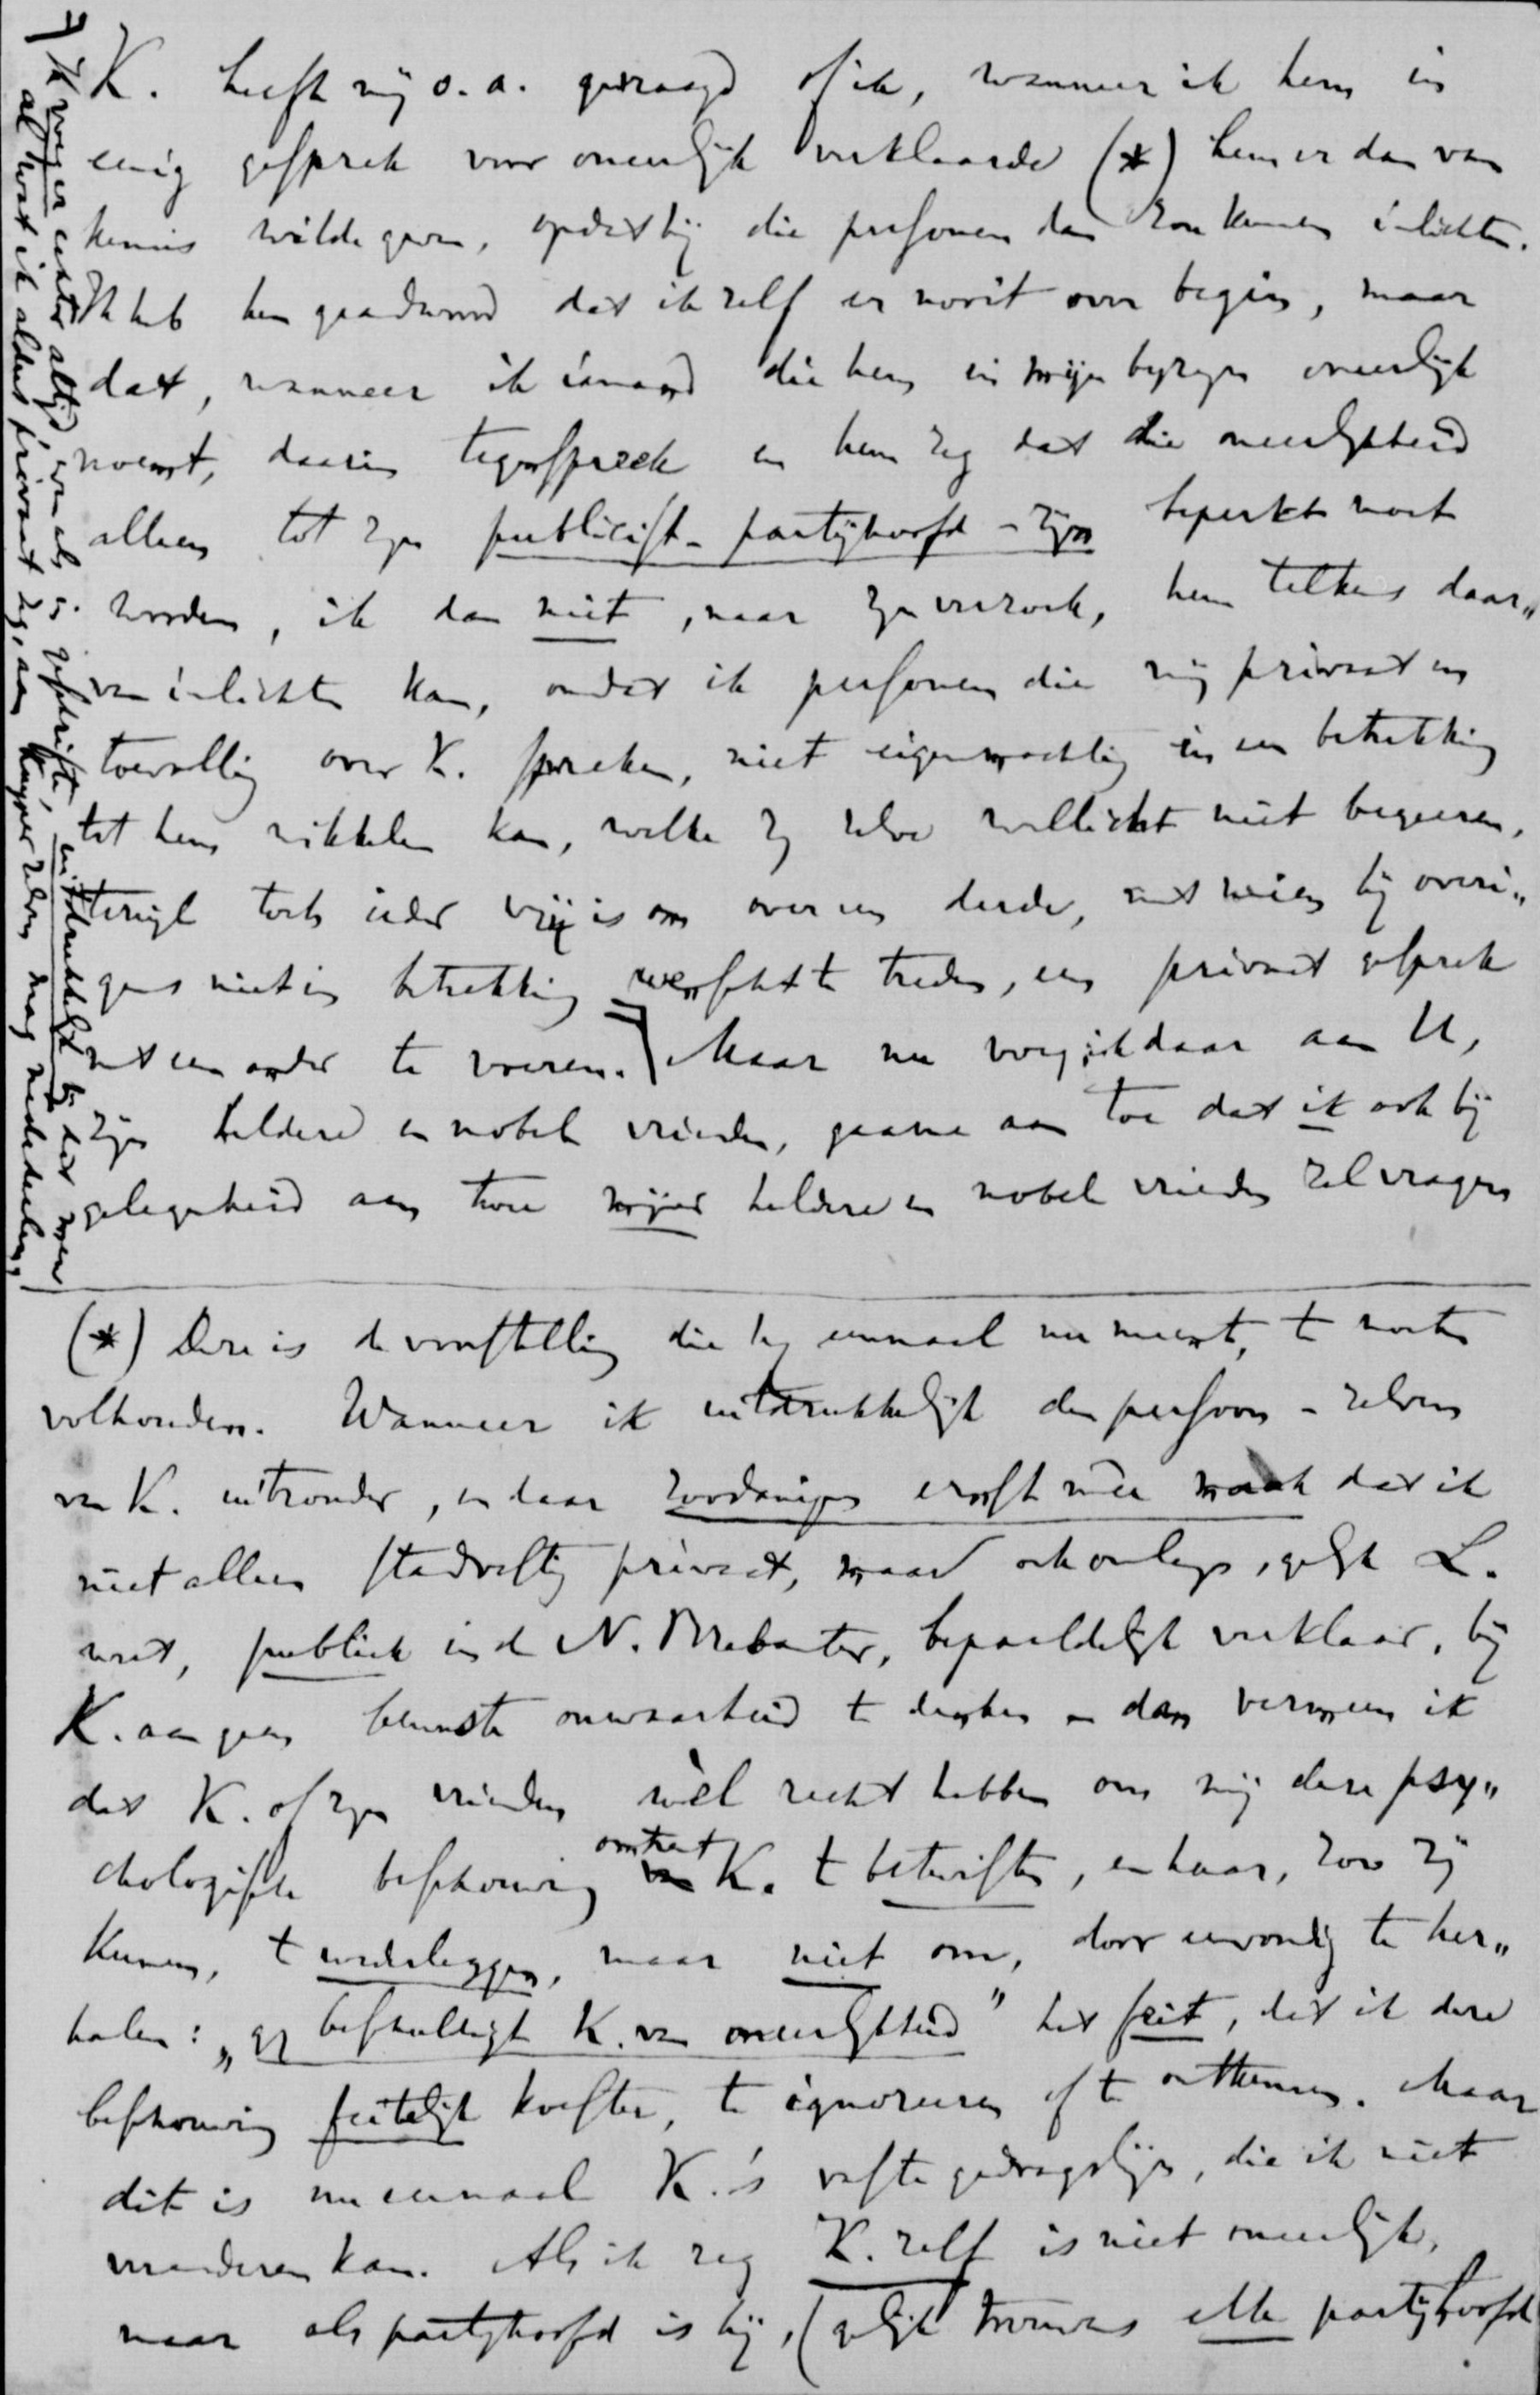 K. heeft mij o.a. gevraagd of ik, wanneer ik hem in
eenig gesprek voor oneerlijk verklaarde (*) hem er dan van
kennis wilde geven, opdat hij die personen dan zou kunnen inlichten.
Ik heb hem geantwoord dat ik zelf er nooit over begin, maar
dat, wanneer ik iemand die hem in mijn bijzijn oneerlijk
noemt, daarin tegenspreek en hem zeg dat die oneerlijkheid
alleen tot zijn publicist- partijhoofd-zijn beperkt moet
worden, ik dan niet, naar zijn verzoek, hem telkens daar„
van inlichten kan, omdat ik personen die mij privaat en
toevallig over K. spreken, niet eigenmachtig in een betrekking
tot hem wikkelen kan, welke zij zelve wellicht niet begeeren,
terwijl toch ieder vrij is om over een derde, met wien hij overi„
gens niet in betrekking wenscht te treden, een privaat gesprek
met een ander te voeren. ⹋) Maar nu voeg ik daar aan U,
zijn heldere en nobele vrienden, gaarne aan toe dat ik ook bij
gelegenheid aan twee mijner heldere en nobele vrienden zal vragen
(*) Deze is de voorstelling die hij eenmaal nu meent, te moeten
volhouden. Wanneer ik uitdrukkelijk den persoon-zelven
van K. uitzonder, en daar zoodanigen ernst mêe maak dat ik
niet alleen standvastig privaat, maar ook onlangs, gelijk L.
weet, publiek in de N. Brabanter, bepaaldelijk verklaar, bij
K. aan geen bewuste onwaarheid te denken – dan vermeen ik
dat K. of zijn vrienden wèl recht hebben om mij deze psy„
chologische beschouwing omtrent K. te betwisten, en haar, zoo zij
kunnen, te wederleggen, maar niet om, door eenvoudig te her„
halen: „gij beschuldigt K. van oneerlijkheid” het feit, dat ik deze
beschouwing feitelijk koester, te ignoreeren of te ontkennen. Maar
dit is nu eenmaal K.'s vaste gedragslijn, die ik niet
veranderen kan. Als ik zeg K. zelf is niet oneerlijk,
maar als partijhoofd is hij, (gelijk trouwens elk partijhoofd
⹋) Ik voeg er echter altijd, even als in geschrifte, uitdrukkelijk bij dat men
al wat ik aldus privaat zeg, aan Kuyper zelven mag mededeelen,